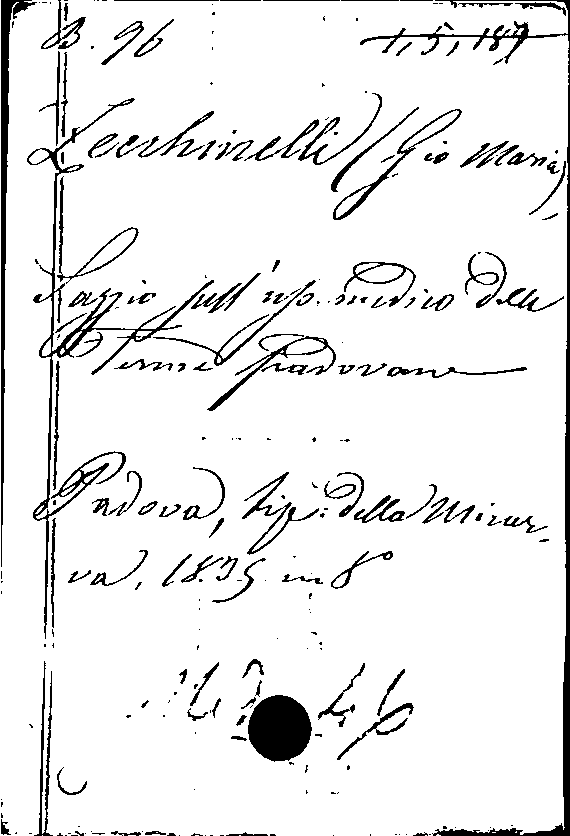 B. 96 1,5,187
Zecchinelli (Gio Maria),
Saggio sull'uso medico delle
Terme Padovane
Padova, tip: della Miner-
va, 1835 in 8°